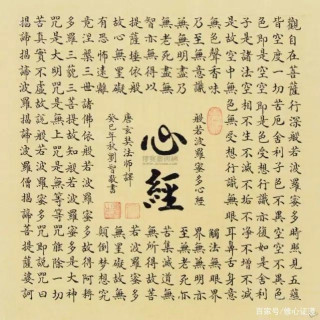 觀自在菩薩行深般若波羅蜜多時照見五蘊
皆空度一切苦厄舍利子色不異空空不異色
色即是空空即是色受想行識亦復如是舍利
子是諸法空相不生不滅不垢不淨不增不減
是故空中無色無受想行識無眼耳鼻舌身意
無色聲香味
觸法無眼界
乃至無意識
界無無明亦
無無明盡乃
至無老死亦
無老死盡無
苦集滅道無
智亦無得以
無所得故菩
提薩埵依般
若波羅蜜多
故心無罣礙
無罣礙故無
有恐怖遠離
顛倒夢想究
竟涅槃三世諸佛依般若波羅蜜多故得阿耨
多羅三藐三菩提故知般若波羅蜜多是大神
咒是大明咒是無上咒是無等等咒能除一切
苦真實不虛故說般若波羅蜜多咒即說咒曰
揭諦揭諦波羅揭諦波羅僧揭諦菩提薩婆訶
般若波羅蜜多心經
心經
唐玄奘法師譯
癸巳年秋劉書
百家号/修心证道